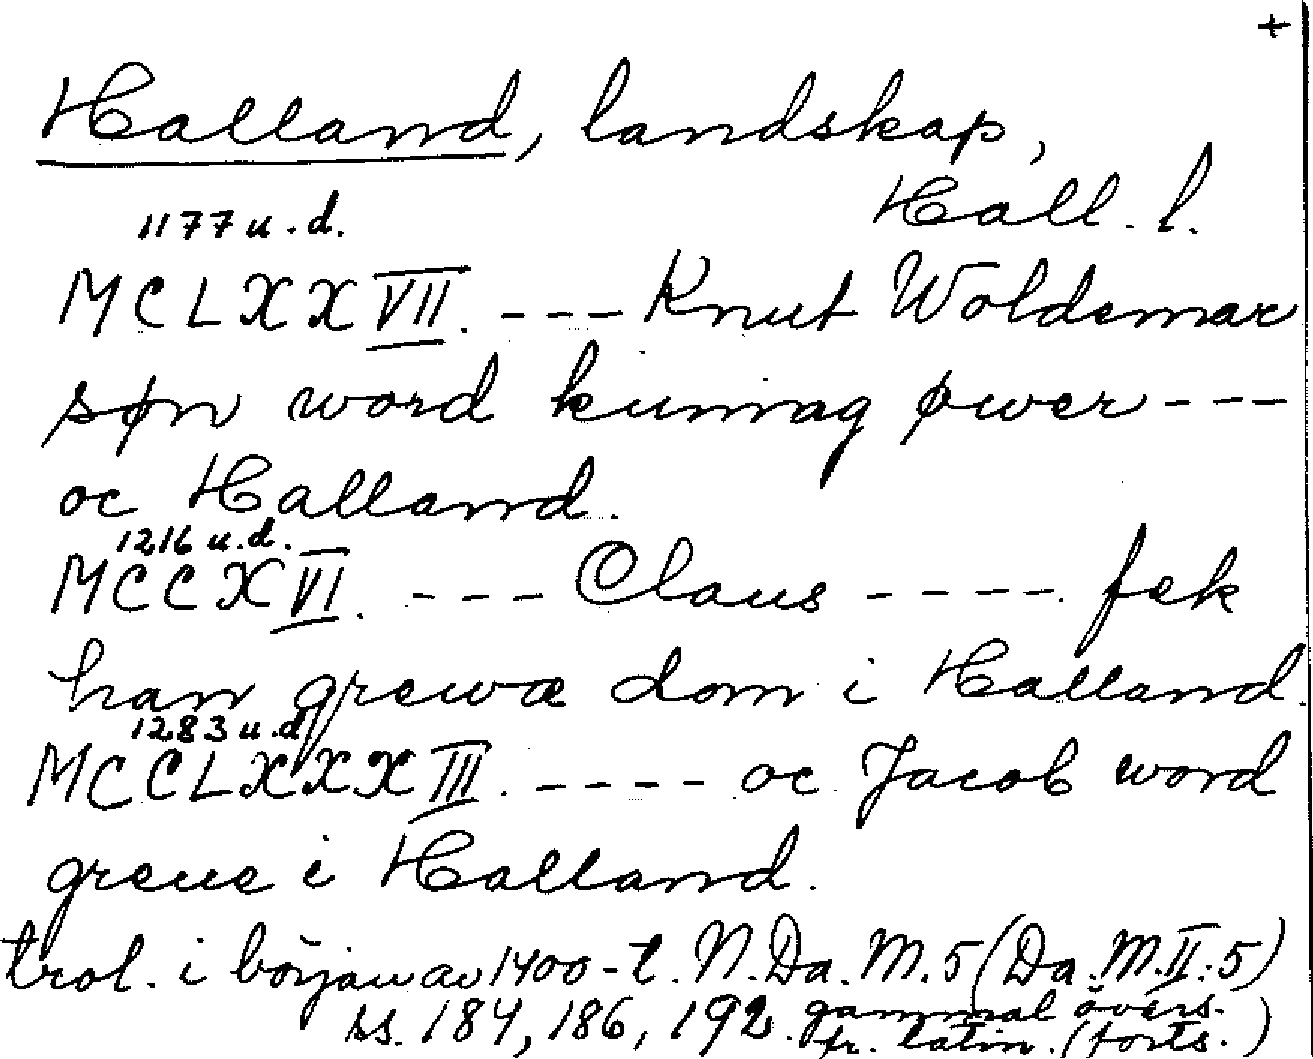 +
Halland, landskap,
Hall. l.
1177 u.d.
MCLXXVII. --- Knut Woldemar
søn word kunnag øwer ---
oc Halland.
1216 u.d.
MCCXVI. --- Claus ---- fek
han grewæ dom i Halland.
1283 u.d.
MCCLXXXIII. ---- oc Jacob word
greue i Halland.
trol. i början av 1400-t. N.Da.M.5 (Da.M.II.5)
ss. 184, 186, 192. gammal övers.
fr. latin. (forts.)